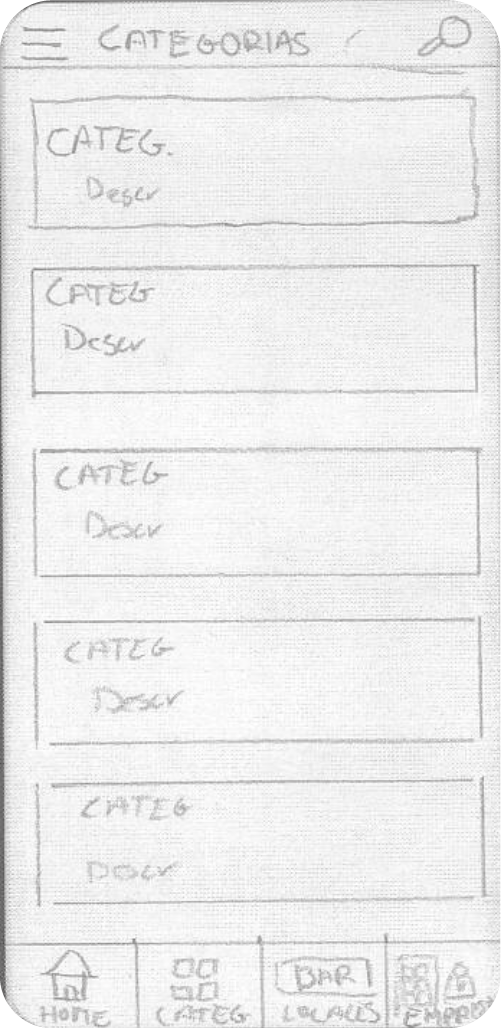 CATEGORIAS
CATEG.
Descr
CATEG
Descr
CATEG
Descr
CATEG
Descr
CATEG
Descr
HOME
CATEG
BAR
LOCALES